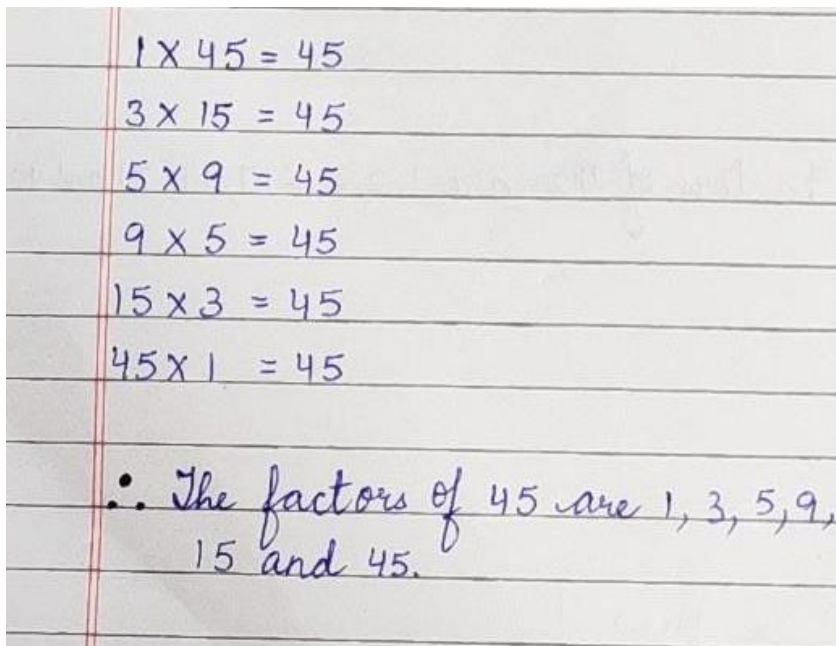 1 × 45 = 45
3 × 15 = 45
5 × 9 = 45
9 × 5 = 45
15 × 3 = 45
45 × 1 = 45
∴ The factors of 45 are 1, 3, 5, 9,
15 and 45.